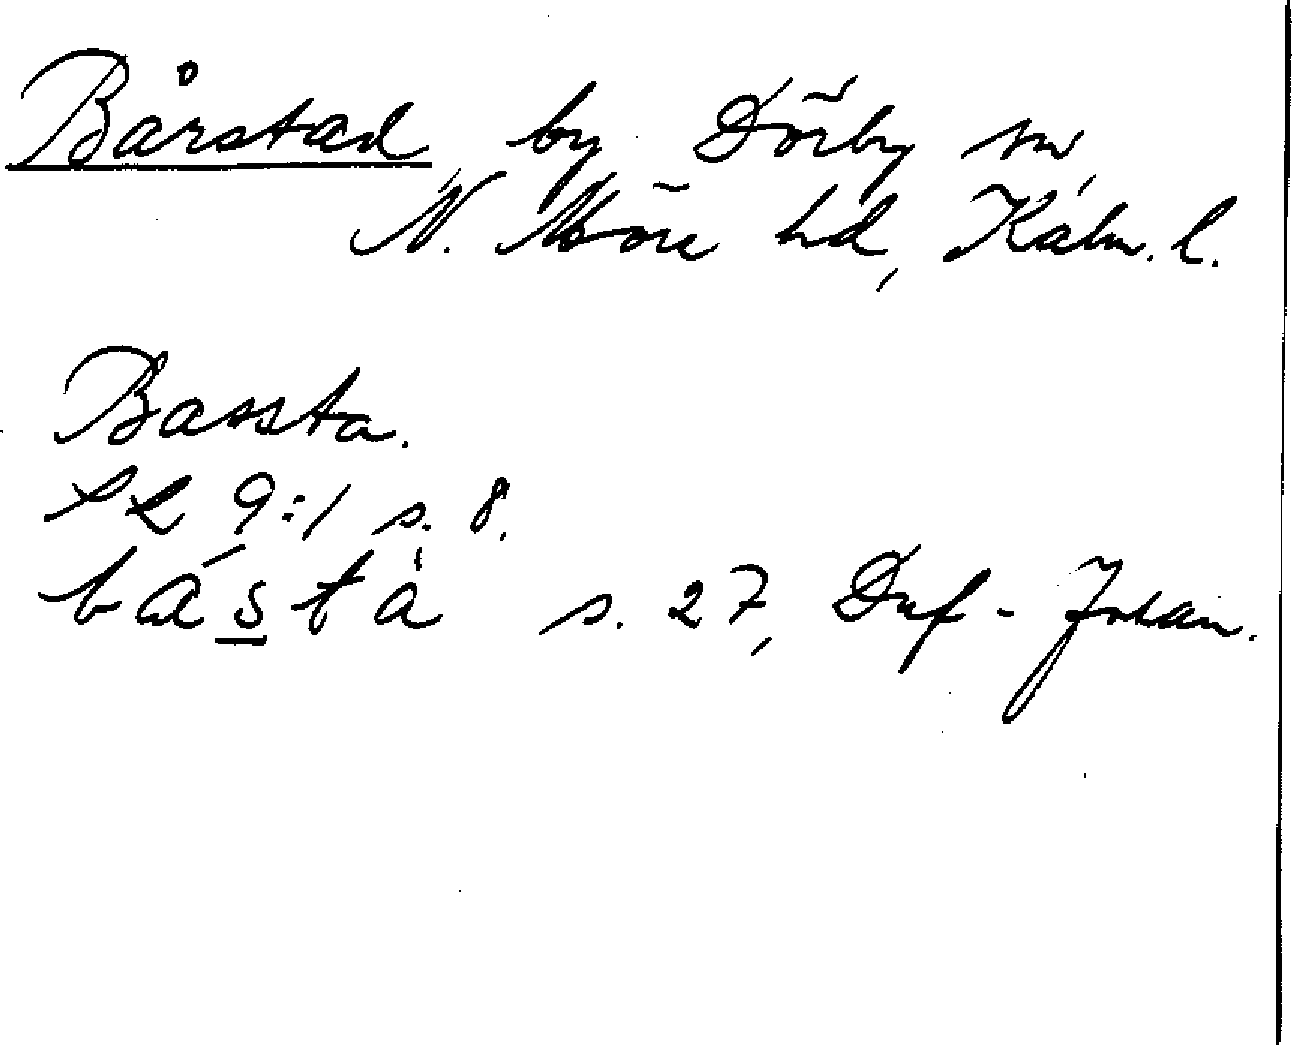 Bårstad by Dörby sn,
N. Möre hd, Kalm. l.
Bassta.
SL 9:1 s. 8.
bástà s. 27, Duf-Johan.